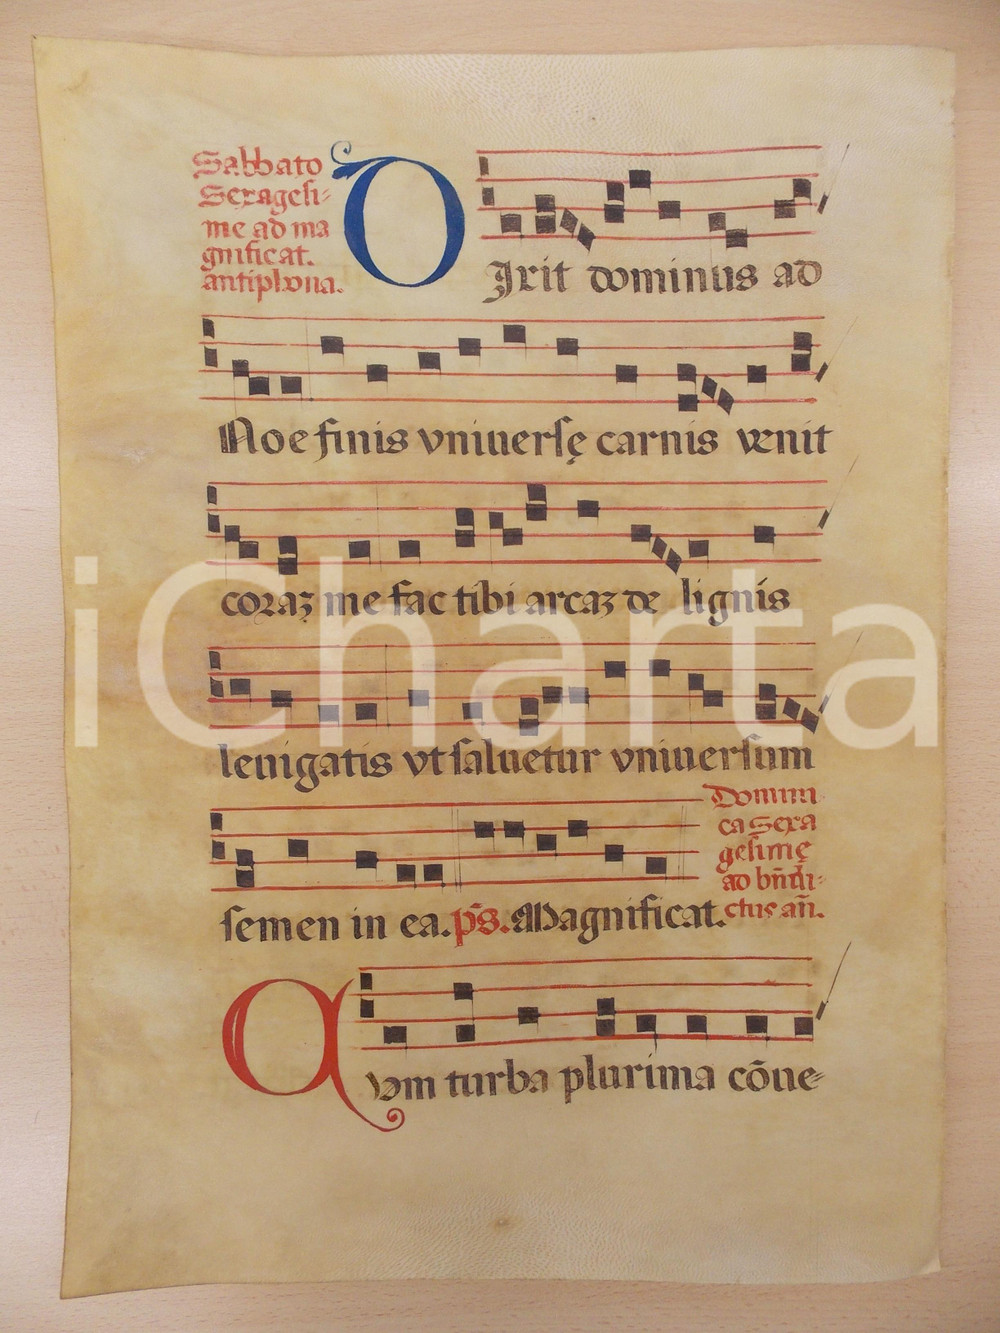 Sabbato
Sexagesi-
me ad ma
gnificat.
antiphona.
DIxit dominus ad
Noe finis vniuersę carnis venit
coraʒ me fac tibi arcaʒ de lignis
leuigatis vt saluetur vniuersum
semen in ea. p̄s. Magnificat.
Domini
ca Sexa
gesimę
ad bn̄di-
ctus an̄.
Qvm turba plurima cōue-
iCharta